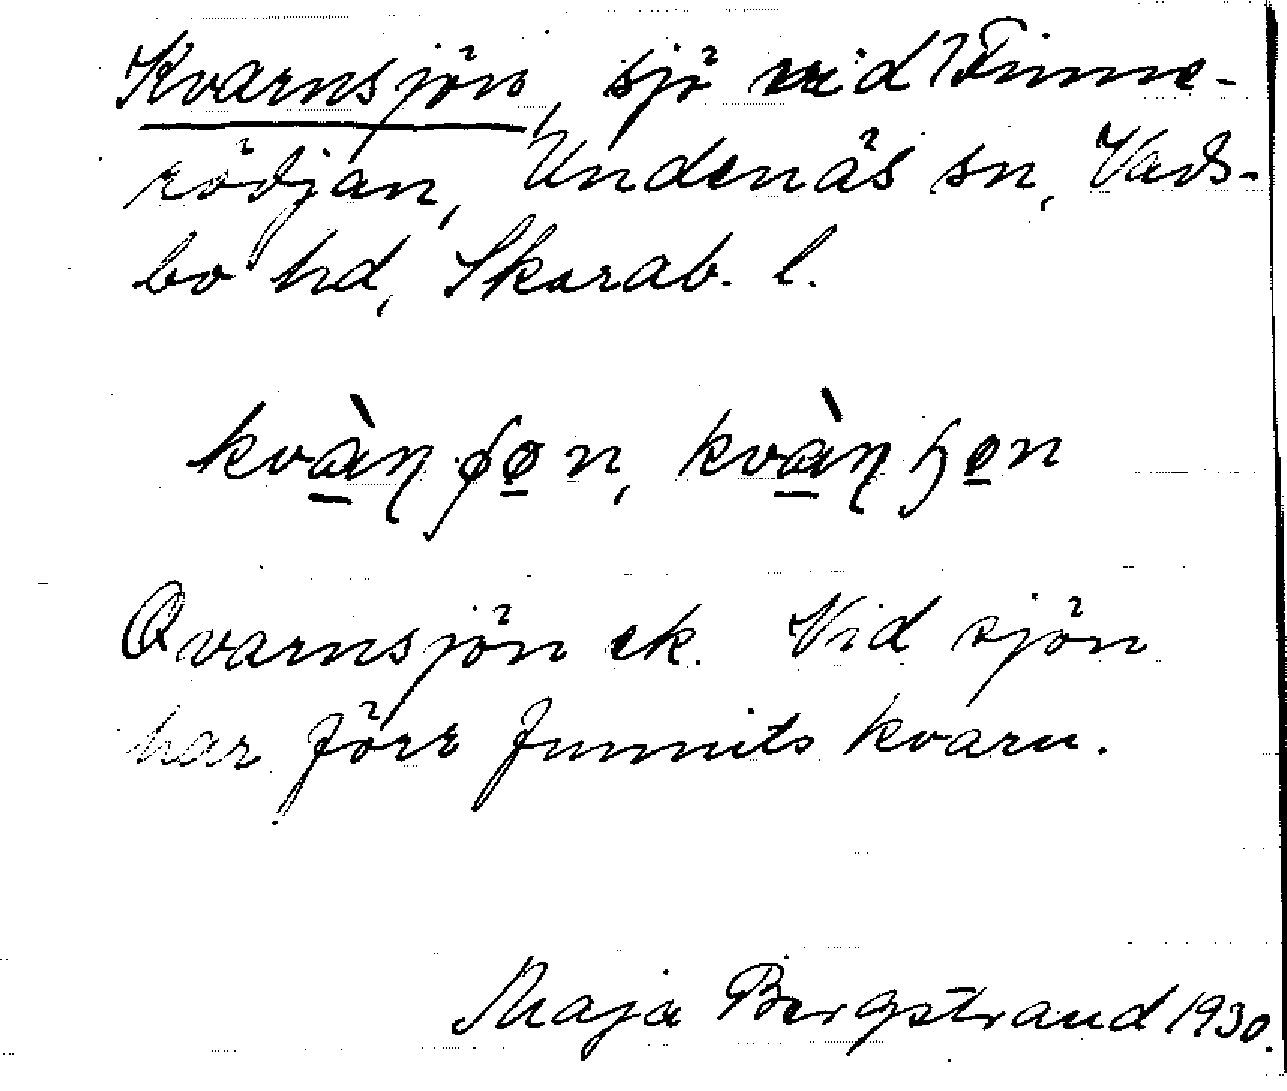 Kvarnsjön, sjö vid Finne-
rödjan, Undenäs sn, Vads-
bo hd, Skarab. l.
Qvarnsjön ek. Vid sjön
har förr funnits kvarn.
Maja Bergstrand 1930.